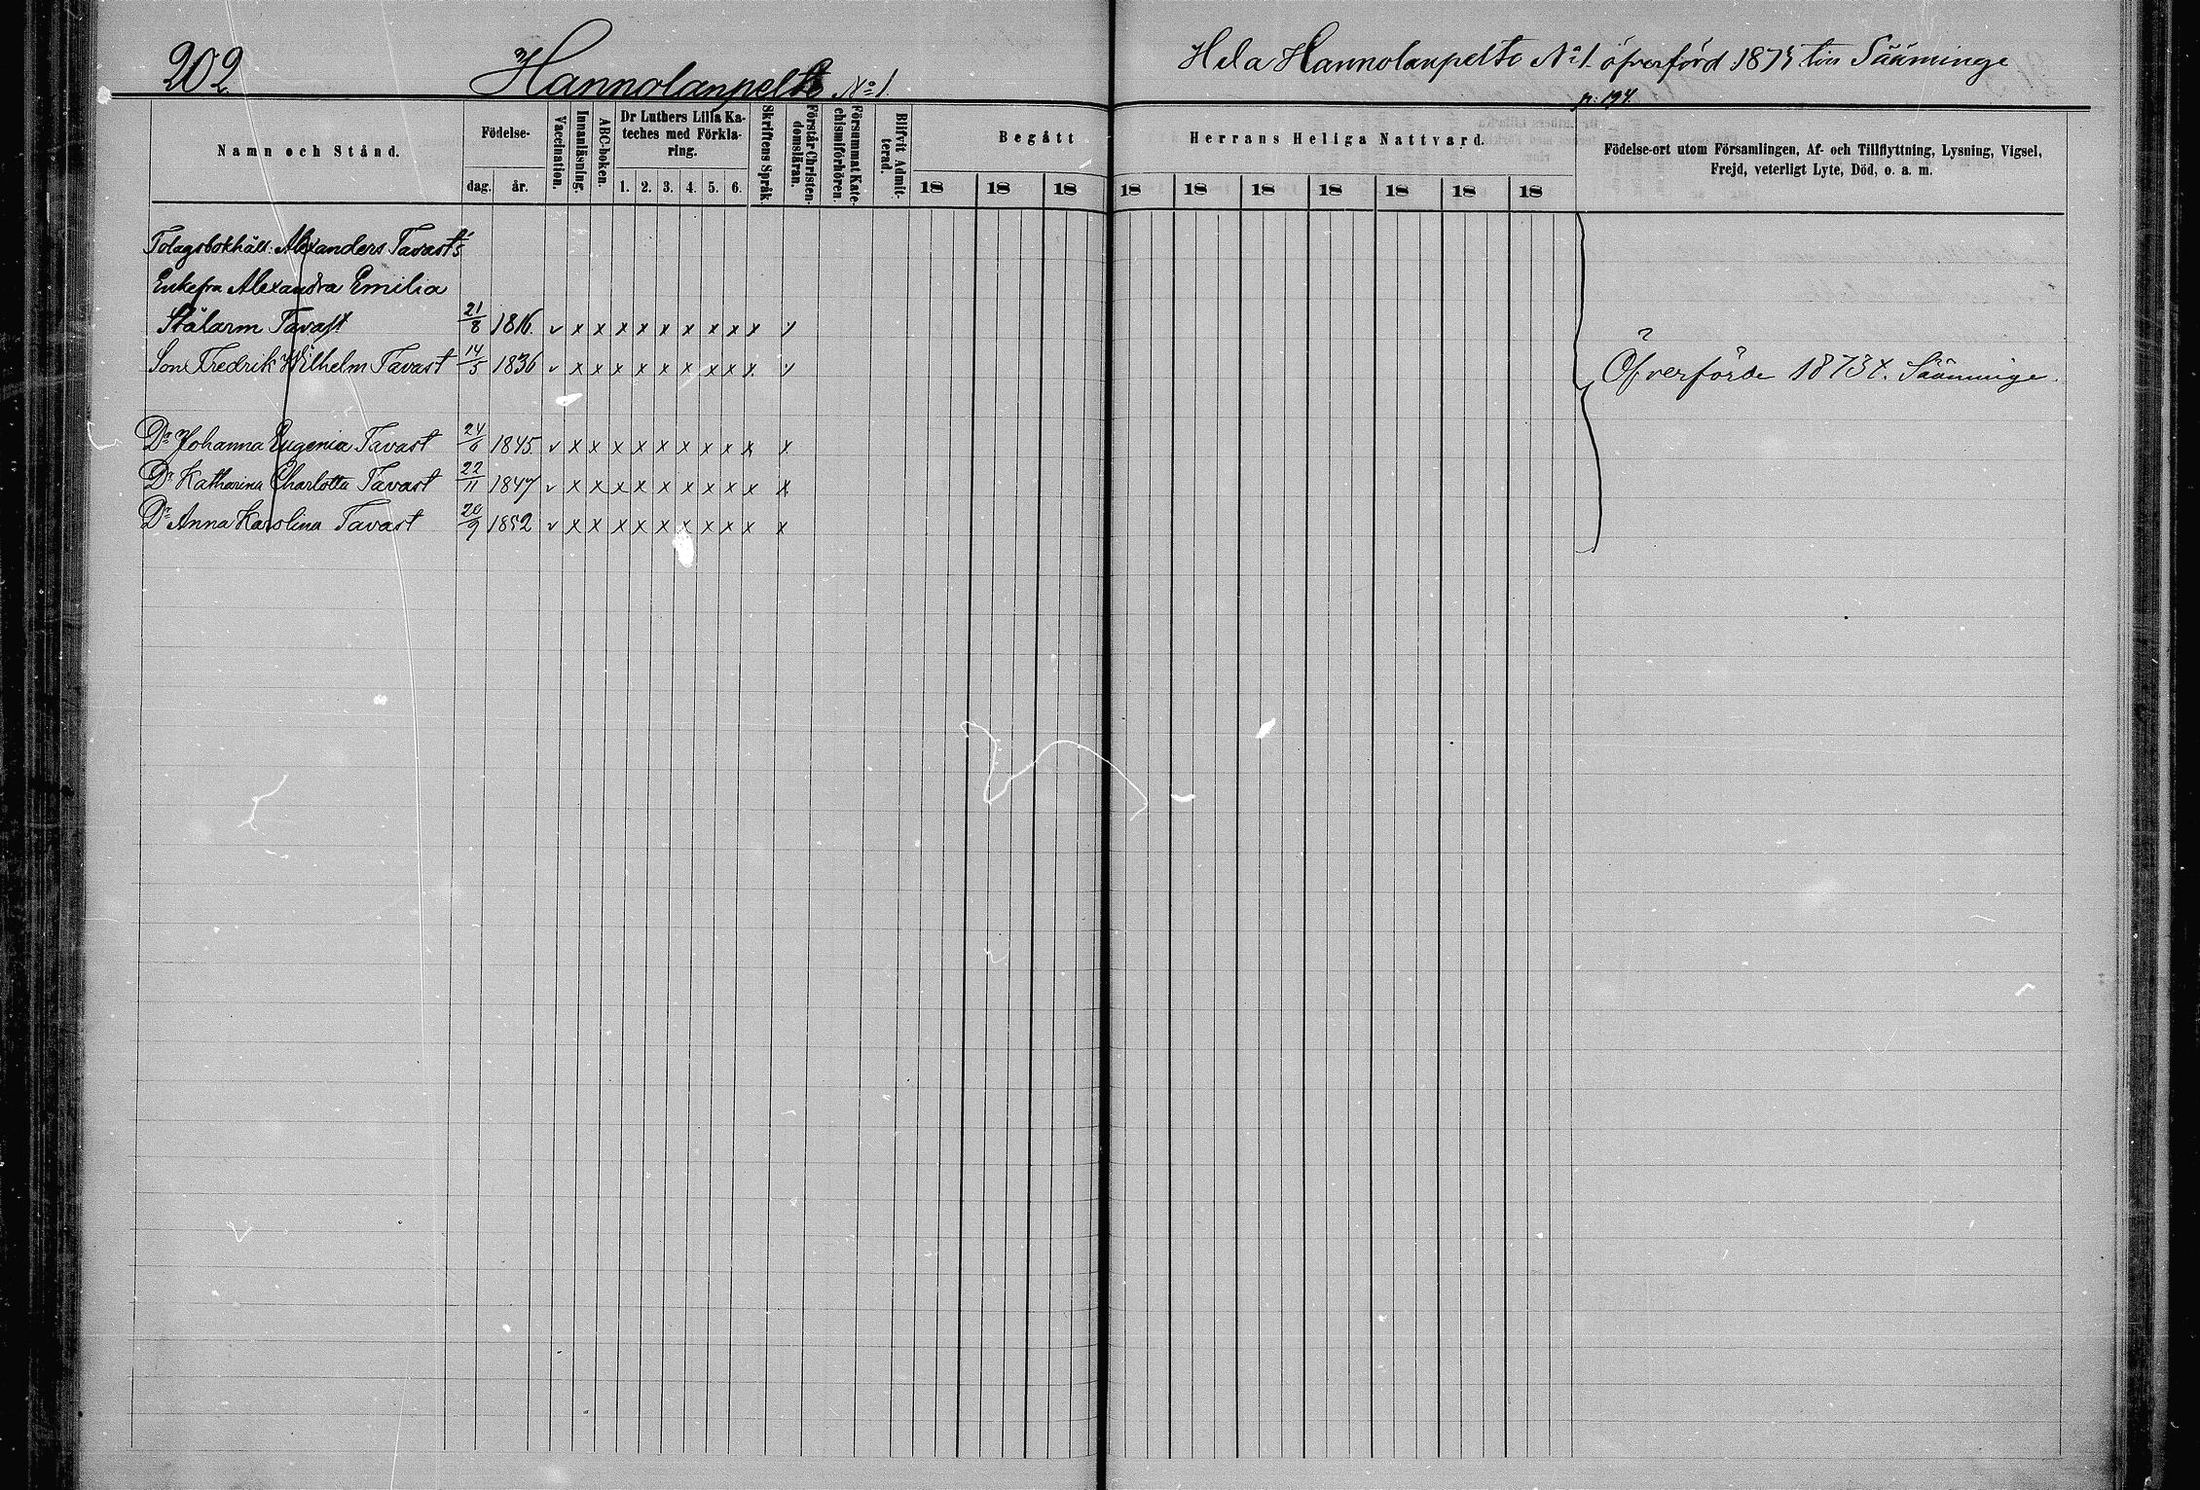 202
Hannolanpelto No 1.
Hela Hannolanpelto No 1. öfverförd 1873 till Sääminge
p. 194.
Namn och Stånd.
Födelse-
dag. år.
Vaccination.
Innanläsning.
ABC-boken.
Dr Luthers Lilla Ka-
teches med Förkla-
ring.
1. 2. 3. 4. 5. 6.
Skriftens Språk.
Förstår Christen-
domsläran.
Försummat Kate-
chismiförhören.
Blifvit Admit-
terad.
Begått Herrans Heliga Nattvard.
18 18 18 18 18 18 18 18 18 18
Födelse-ort utom Församlingen, Af- och Tillflyttning, Lysning, Vigsel,
Frejd, veterligt Lyte, Död, o. a. m.
Alexanders Tavast's
Enkefru Alexandra Emilia
Stålarm Tavast 21/8 1816. v x x x x x x x x x v
Son Fredrik Wilhelm Tavast 14/5 1836 v x x x x x x x x x v
Öfverförde 1873 t. Sääminge.
Dr Johanna Eugenia Tavast 24/6 1845. v x x x x x x x x x x
Dr Katharina Charlotta Tavast 22/11 1847 v x x x x x x x x x x
Dr Anna Karolina Tavast 20/9 1852 v x x x x x x x x x x